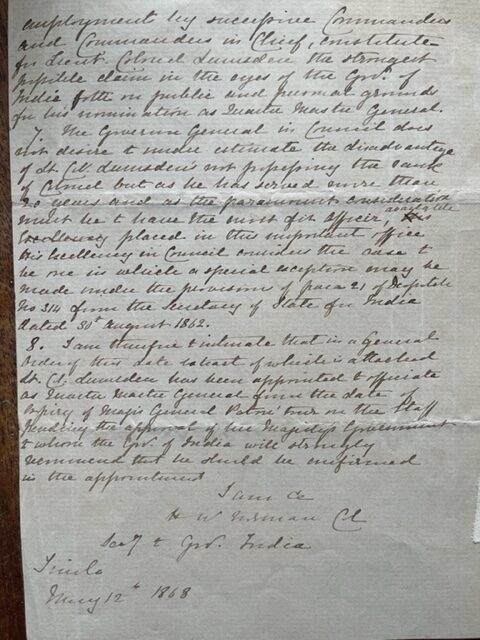 employment by successive Commanders
and Commanders in Chief, constitute
for Lieut. Colonel Lumsden the strongest
possible claim in the eyes of the Govt. of
India both on public and personal grounds
for his nomination as Quarter Master General
7. The Governor General in Council does
not desire to under estimate the disadvantage
of Lt. Col. Lumsden's not possessing the rank
of Colonel but as he has served more than
20 years and as the paramount consideration
must be to have the most fit officer
Excellency placed in this important office
His Excellency in Council considers the case to
be one in which a special exception may be
made under the provisions of para 21 of Despatch
No 314 from the Secretary of State for India
dated 30th August 1862.
8. I am therefore to intimate that in a General
Order of this date extract of which is attached
Lt. Cl. Lumsden has been appointed to officiate
as Quarter Master General from the date of
expiry of Major General tour on the Staff
pending the approval of her Majesty's Government
to whom the Govt. of India will strongly
recommend that he should be confirmed
in the appointment
I am &c
H W Norman Cl
Secy to Govt. India
Simla
May 12th 1868